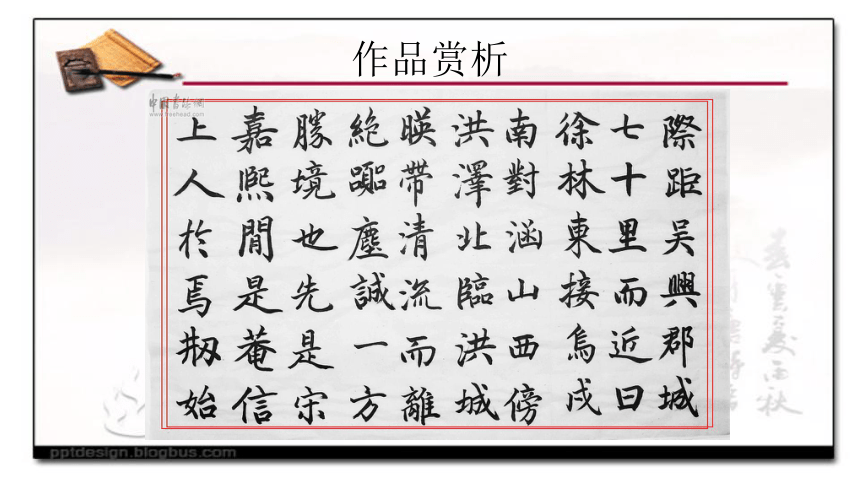 作品赏析
中国书法网
際距吳興郡城
七十里而近曰
徐林東接烏戍
南對涵山西傍
洪澤北臨洪城
暎帶清流而離
絶囂塵誠一方
勝境也先是宋
嘉熈閒是菴信
上人於焉剏始
pptdesign.blogbus.com